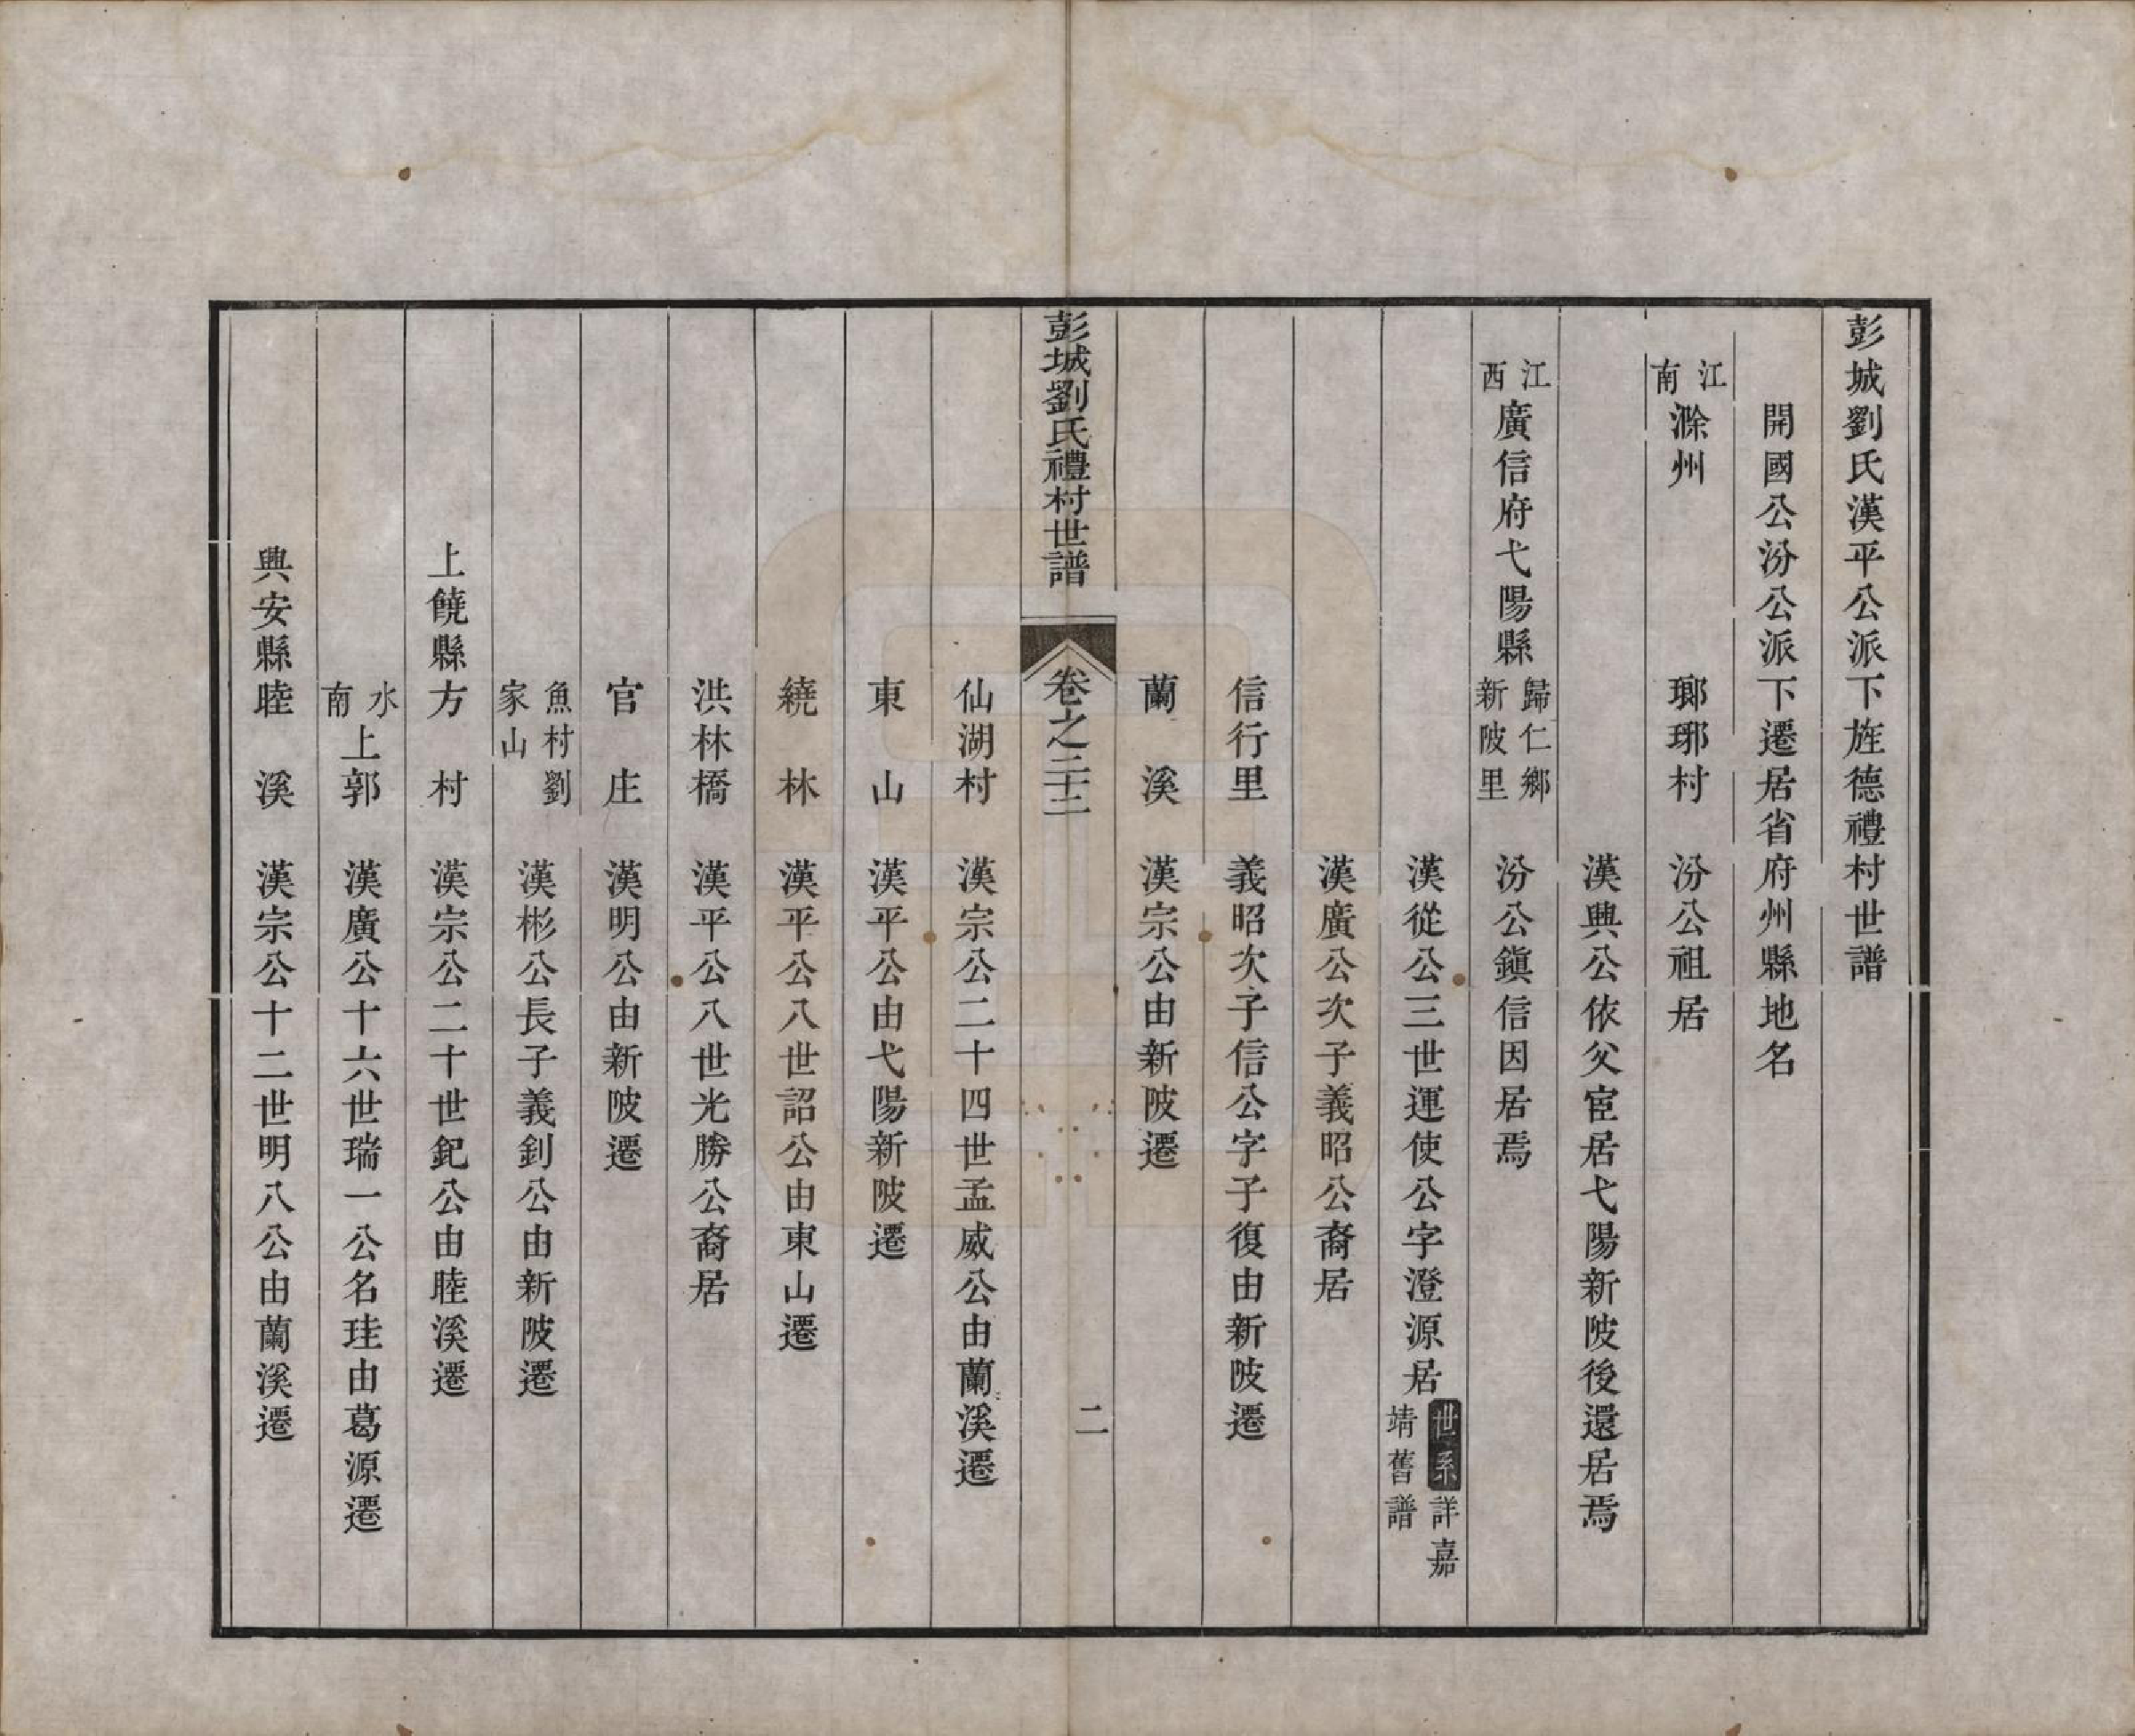 彭城劉氏漢平公派下旌德禮村世譜
開國公汾公派下遷居省府州縣地名
江南滁州　瑯琊村　汾公祖居
漢興公依父宦居弋陽新陂後還居焉
江西廣信府弋陽縣歸仁鄉新陂里　汾公鎭信因居焉
漢從公三世運使公字澄源居世系詳嘉靖舊譜
漢廣公次子義昭公裔居
信行里　義昭次子信公字子復由新陂遷
蘭溪　漢宗公由新陂遷
彭城劉氏禮村世譜　卷之二十二　二
仙湖村　漢宗公二十四世孟威公由蘭溪遷
東山　漢平公由弋陽新陂遷
繞林　漢平公八世詔公由東山遷
洪林橋　漢平公八世光勝公裔居
官庄　漢明公由新陂遷
魚村劉家山　漢彬公長子義釗公由新陂遷
上饒縣方村　漢宗公二十世釲公由睦溪遷
水南上郭　漢廣公十六世瑞一公名珪由葛源遷
興安縣睦溪　漢宗公十二世明八公由蘭溪遷